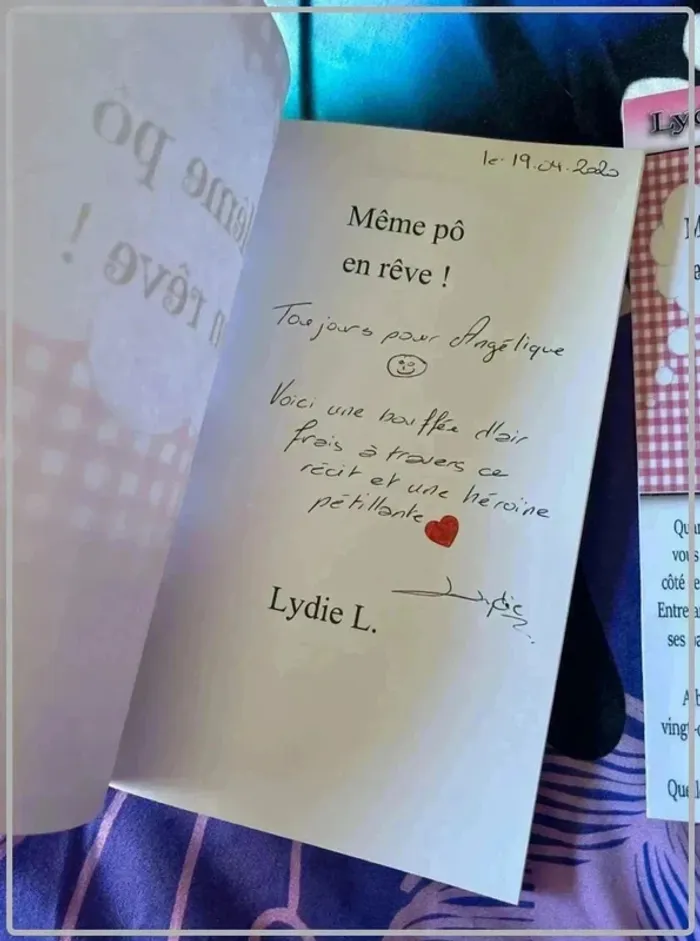 le 19.04.2020
Même pô
en rêve !
Toujours pour Angélique
Voici une bouffée d'air
frais à travers ce
récit et une héroïne
pétillante
Lydie
Lydie L.
ême pô
n rêve !
Ly
Qua
vous
côté
Entre
ses
vingt
Quel